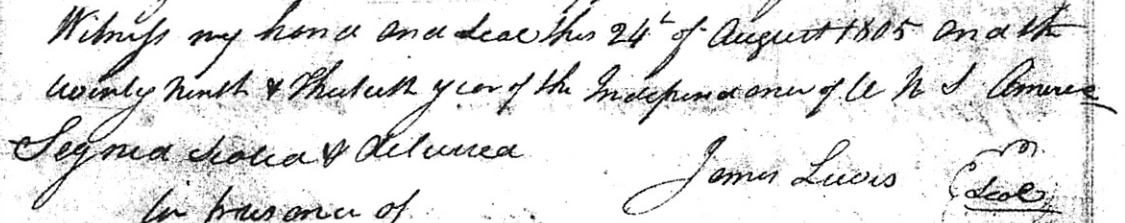 Witness my hand and seal this 24t of August 1805 and the
twenty ninth & Thirtieth year of the Independance of U N S America
Segned Sealed & Delivered
James Lewis Seal
in presance of